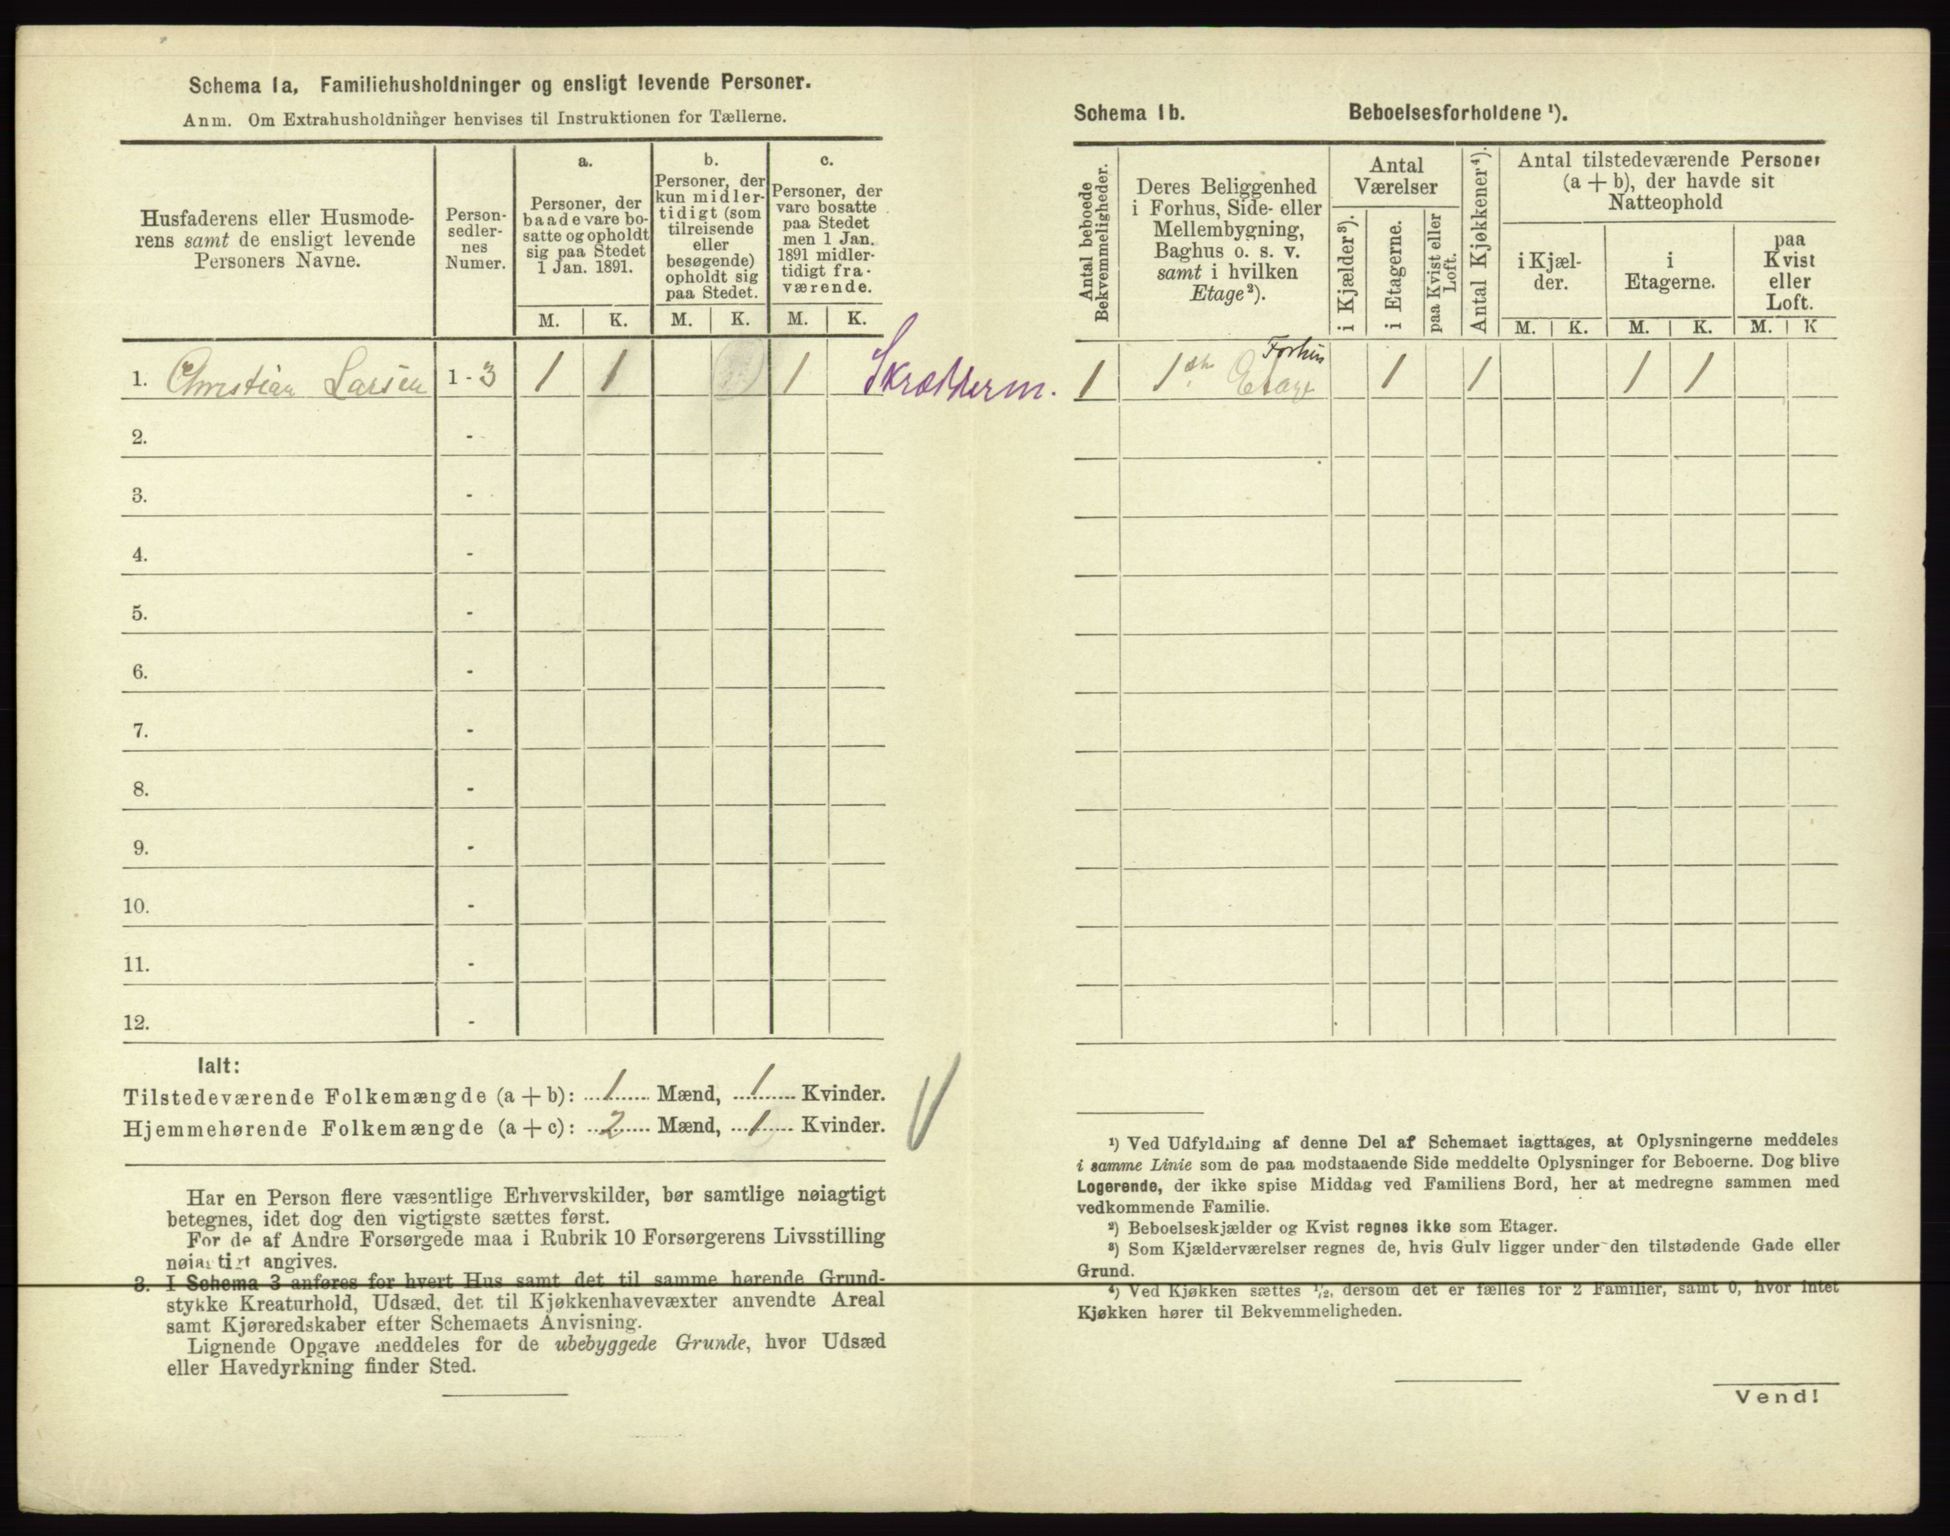 Schema 1a, Familiehusholdninger og ensligt levende Personer.
Anm. Om Extrahusholdninger henvises til Instruktionen for Tællerne.
Husfaderens eller Husmode-
rens samt de ensligt levende
Personers Navne.
Person-
sedler-
nes
Numer.
a.
Personer, der
baade vare bo-
satte og opholdt
sig paa Stedet
1 Jan. 1891.
b.
Personer, der
kun midler-
tidigt (som
tilreisende
eller
besøgende)
opholdt sig
paa Stedet.
c.
Personer, der
vare bosatte
paa Stedet
men 1 Jan.
1891 midler-
tidigt fra-
værende.
M. K. M. K. M. K.
1. Christian Larsen 1 - 3 1 1 1 Skrædderm.
2. -
3. -
4. -
5. -
6. -
7. -
8. -
9. -
10. -
11. -
12. -
Ialt:
Tilstedeværende Folkemængde (a + b): 1 Mænd, 1 Kvinder.
Hjemmehørende Folkemængde (a + c): 2 Mænd, 1 Kvinder.
Har en Person flere væsentlige Erhvervskilder, bør samtlige nøiagtigt
betegnes, idet dog den vigtigste sættes først.
For de af Andre Forsørgede maa i Rubrik 10 Forsørgerens Livsstilling
nøiagtigt angives.
3. I Schema 3 anføres for hvert Hus samt det til samme hørende Grund-
stykke Kreaturhold, Udsæd, det til Kjøkkenhavevæxter anvendte Areal
samt Kjøreredskaber efter Schemaets Anvisning.
Lignende Opgave meddeles for de ubebyggede Grunde, hvor Udsæd
eller Havedyrkning finder Sted.
Schema 1b. Beboelsesforholdene ¹).
Antal beboede
Bekvemmeligheder.
Deres Beliggenhed
i Forhus, Side- eller
Mellembygning,
Baghus o. s. v.
samt i hvilken
Etage²).
Antal
Værelser
i Kjælder³).
i Etagerne.
paa Kvist eller
Loft.
Antal Kjøkkener⁴).
Antal tilstedeværende Personer
(a + b), der havde sit
Natteophold
i Kjæl-
der.
i
Etagerne.
paa
Kvist
eller
Loft.
M. K. M. K. M. K
1 1 Etage 1 1 1 1
¹) Ved Udfyldning af denne Del af Schemaet iagttages, at Oplysningerne meddeles
i samme Linie som de paa modstaaende Side meddelte Oplysninger for Beboerne. Dog blive
Logerende, der ikke spise Middag ved Familiens Bord, her at medregne sammen med
vedkommende Familie.
²) Beboelseskjælder og Kvist regnes ikke som Etager.
³) Som Kjælderværelser regnes de, hvis Gulv ligger under den tilstødende Gade eller
Grund.
⁴) Ved Kjøkken sættes ¹/₂, dersom det er fælles for 2 Familier, samt 0, hvor intet
Kjøkken hører til Bekvemmeligheden.
Vend!